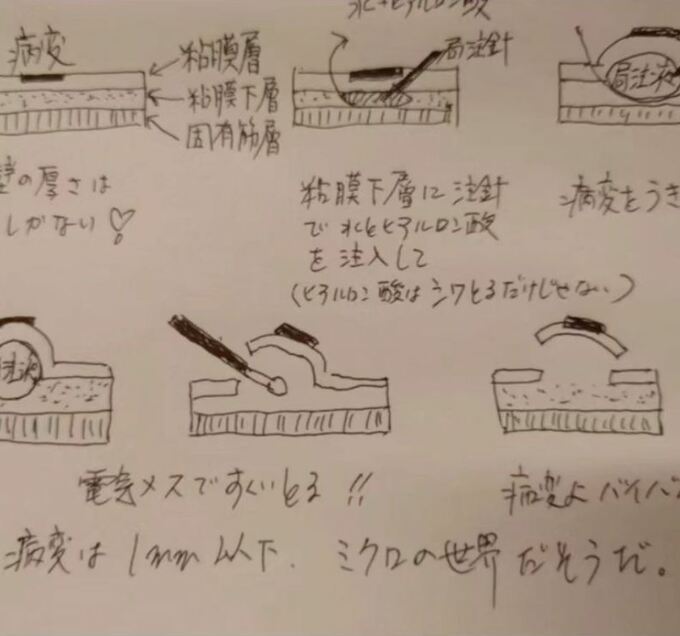 水+ヒアルロン酸
病変
粘膜層
粘膜下層
固有筋層
局注針
局注液
の厚さは
しかない♡
粘膜下層に注針
で水とヒアルロン酸
を注入して
(ヒアルロン酸はシワとるだけじゃない)
病変をうき
注液
電気メスですくいとる!!
病変よバイバ
病変は1mm以下. ミクロの世界だそうだ。